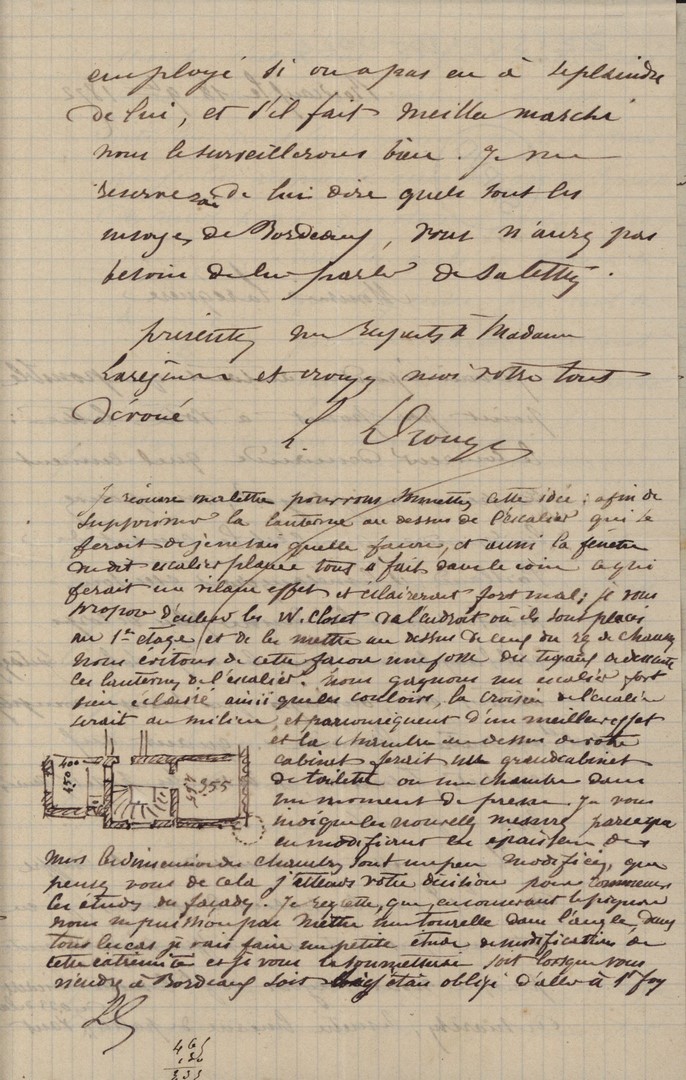 employé si on a pas eu à se plaindre
de lui, et s'il fait meilleur marché
nous le surveillerons bien. Je me
reserverai de lui dire quels sont les
usages de Bordeaux, vous n'aurez pas
besoin de lui parler de
presentez mes respects à Madame
et croyez moi votre tout
dévoué
L. Drouyn
Je réouvre ma lettre pour vous soumettre cette idée : afin de
supprimer la lanterne au dessus de l'escalier qui se
ferait de je ne sais quelle façon, et aussi la fenetre
du dit escalier placée tout à fait dans le coin ce qui
ferait un vilain effet et éclairerait fort mal ; je vous
propose d'enlever les W. Closet de l'endroit où ils sont placés
au 1er étage et de les mettre au dessus de ceux du rez de chaussée
nous évitons de cette façon une fosse des tuyaux de descente
les lanternes de l'escalier. nous gagnons un escalier fort
bien éclairé ainsi que les couloirs, la croisée de l'escalier
serait au milieu et par conséquent d'un meilleur effet
et la chambre au dessus de votre
cabinet ferait un grand cabinet
de toilette ou une chambre dans
un moment de presse. Je vous
indique les nouvelles mesures parce que
en modifiant les épaisseurs des
murs les dimensions des chambres sont un peu modifiées, que
pensez vous de cela j'attends votre décision pour commencer
les études des façades. Je regrette, que, en conservant le pignon
nous ne puissions pas mettre une tourelle dans l'angle, dans
tous les cas je vais faire une petite étude de modification de
cette extremité et je vous la soumettrai soit lorsque vous
viendrez à Bordeaux soit si j'étais obligé d'aller à Ste foy
LD
400
450
355